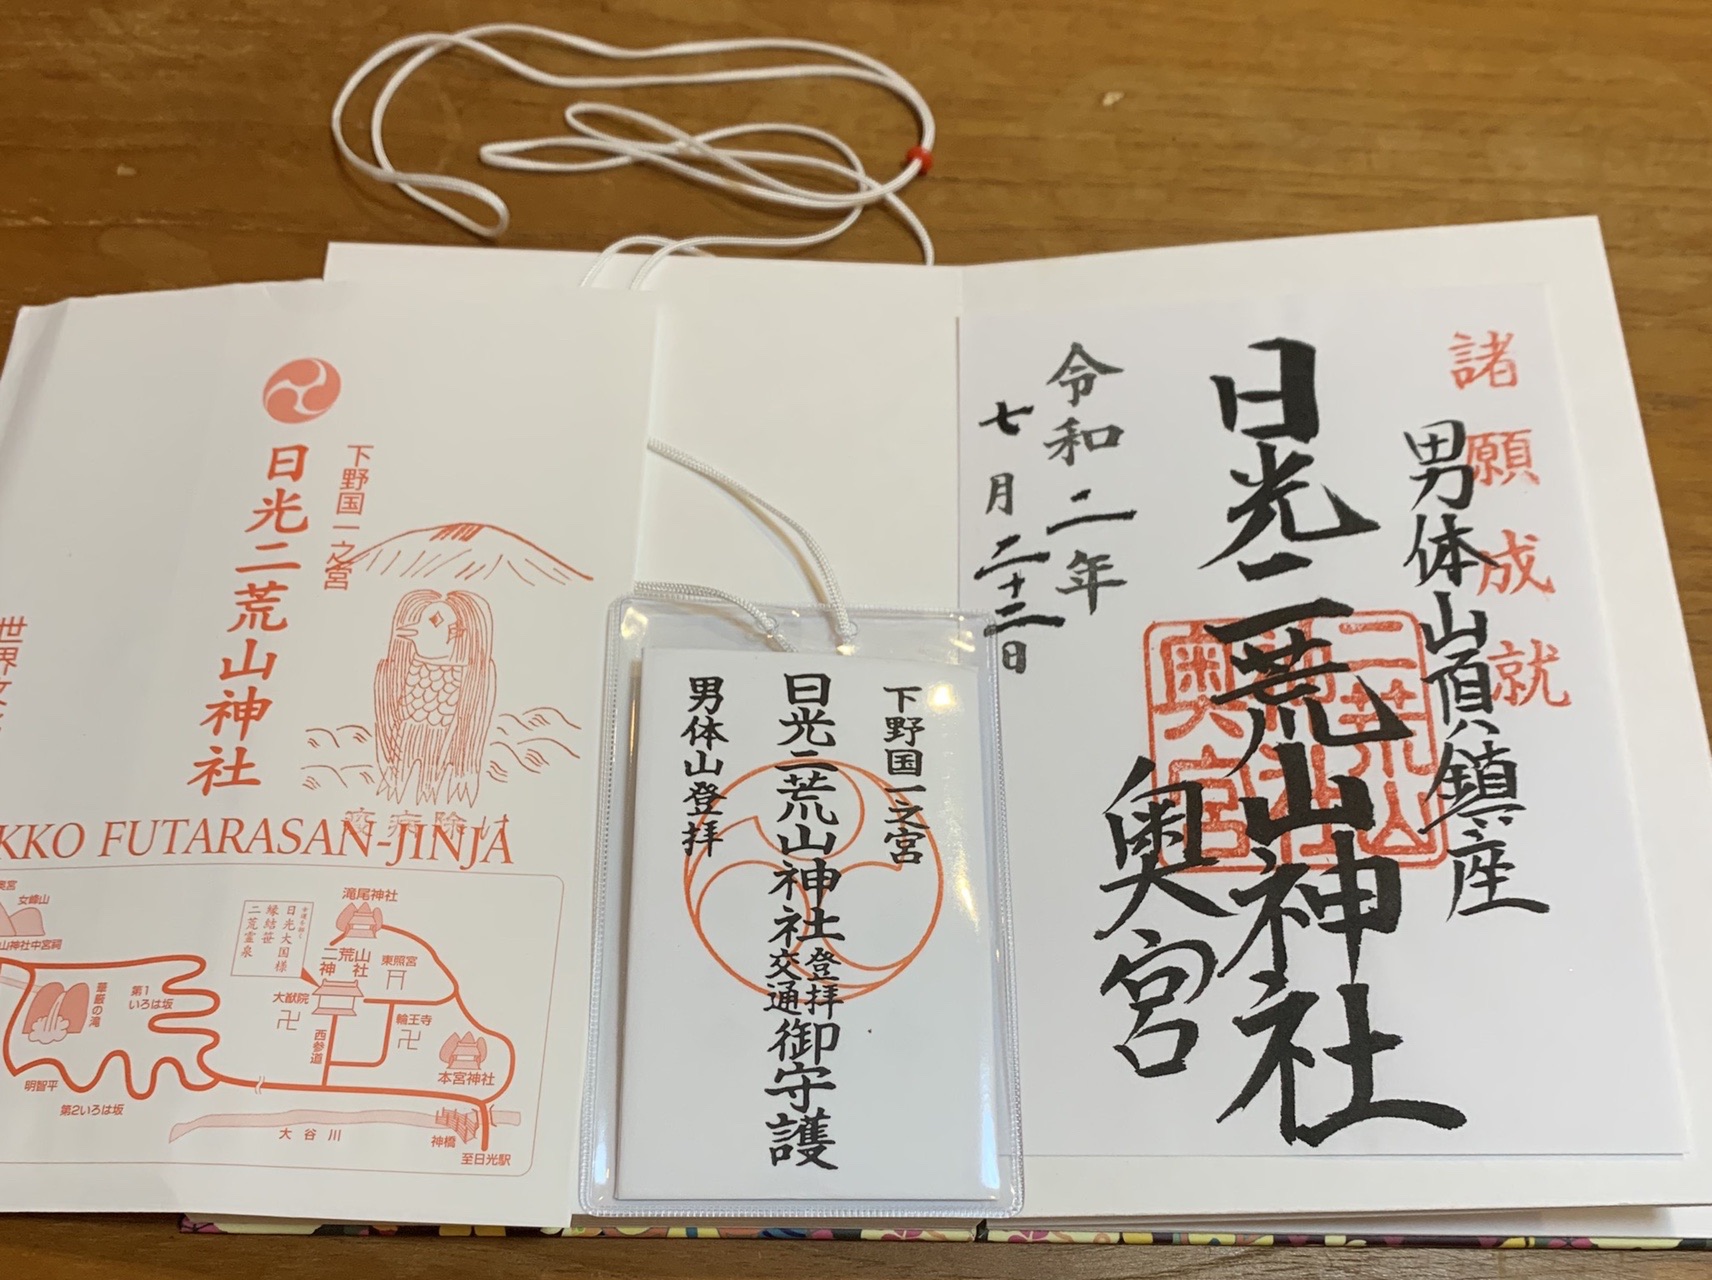 諸願成就
男体山頂鎮座
日光二荒山神社
奥宮
二荒山
神社
奥宮
令和二年
七月二十三日
下野国一之宮
日光二荒山神社
登拝
交通
御守護
男体山登拝
下野国一之宮
日光二荒山神社
疫病除け
KKO FUTARASAN-JINJA
女峰山
山神社中宮祠
華厳の滝
第1
いろは坂
明智平
第2いろは坂
日光大国様
縁結笹
二荒霊泉
滝尾神社
二荒山
神社
東照宮
大猷院
輪王寺
西参道
本宮神社
大谷川
神橋
至日光駅